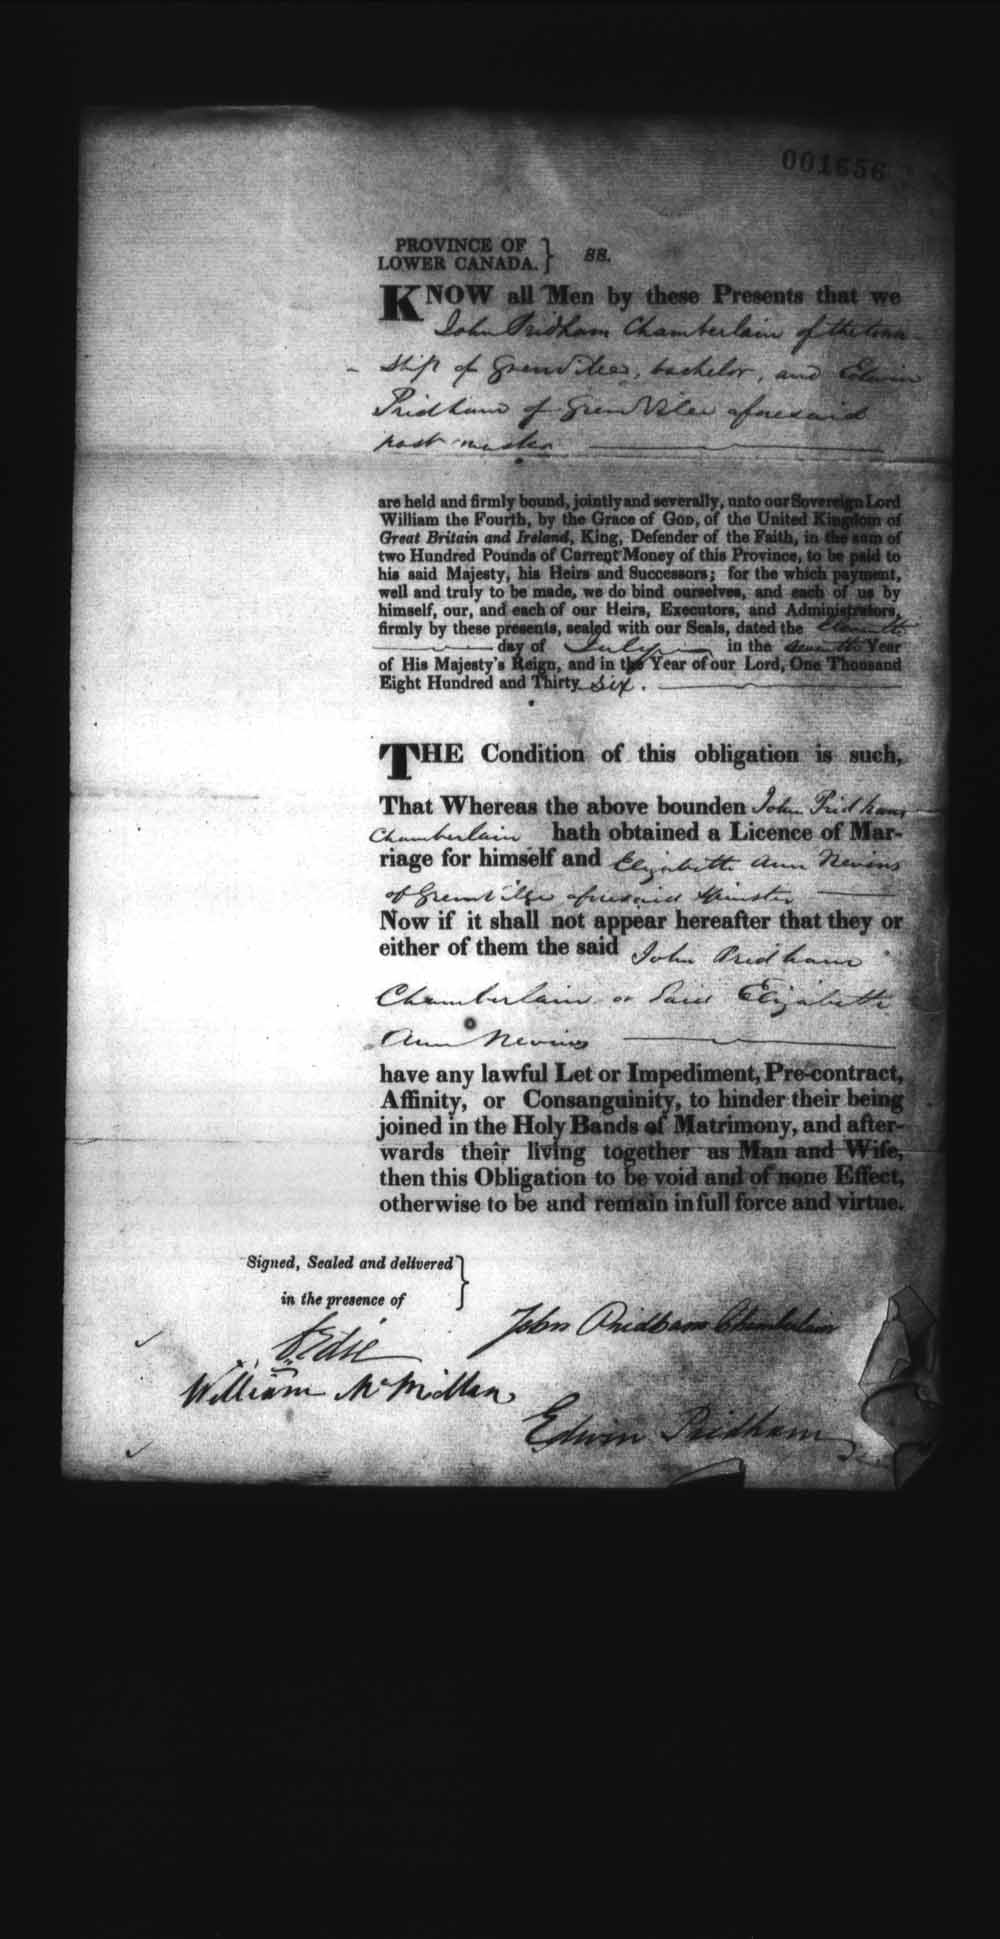 001656
PROVINCE OF
LOWER CANADA. } ss.
KNOW all Men by these Presents that we
John Pridham Chamberlain of the town
ship of Grenville, bachelor, and Edwin
Pridham of Grenville aforesaid
post master
are held and firmly bound, jointly and severally, unto our Sovereign Lord
William the Fourth, by the Grace of GOD, of the United Kingdom of
Great Britain and Ireland, King, Defender of the Faith, in the sum of
two Hundred Pounds of Current Money of this Province, to be paid to
his said Majesty, his Heirs and Successors; for the which payment,
well and truly to be made, we do bind ourselves, and each of us by
himself, our, and each of our Heirs, Executors, and Administrators,
firmly by these presents, sealed with our Seals, dated the Eleventh
day of July in the seventh Year
of His Majesty's Reign, and in the Year of our Lord, One Thousand
Eight Hundred and Thirty Six.
THE Condition of this obligation is such,
That Whereas the above bounden John Pridham
Chamberlain hath obtained a Licence of Mar-
riage for himself and Elizabeth Ann Nevins
of Grenville aforesaid Spinster
Now if it shall not appear hereafter that they or
either of them the said John Pridham
Chamberlain or Said Elizabeth
Ann Nevins
have any lawful Let or Impediment, Pre-contract,
Affinity, or Consanguinity, to hinder their being
joined in the Holy Bands of Matrimony, and after-
wards their living together as Man and Wife,
then this Obligation to be void and of none Effect,
otherwise to be and remain in full force and virtue.
Signed, Sealed and delivered
in the presence of
John Pridham Chamberlain
William McMillan
Edwin Pridham